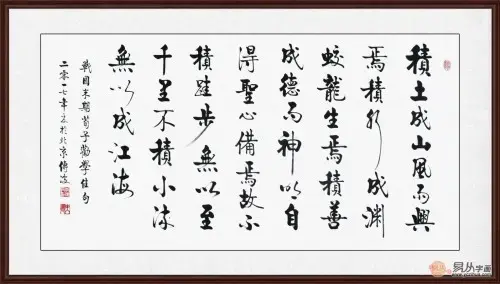 積土成山風雨興
焉積水成渊
蛟龍生焉積善
成德而神明自
得聖心備焉故不
積跬步無以至
千里不積小流
無以成江海
戰國末期荀子勸學佳句
二零一七年於北京
易从字画